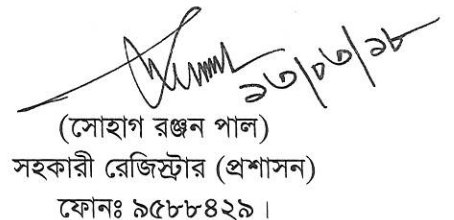 ১৩/০৩/১৮
(সোহাগ রঞ্জন পাল)
সহকারী রেজিস্ট্রার (প্রশাসন)
ফোনঃ ৯৫৮৮৪২৯।